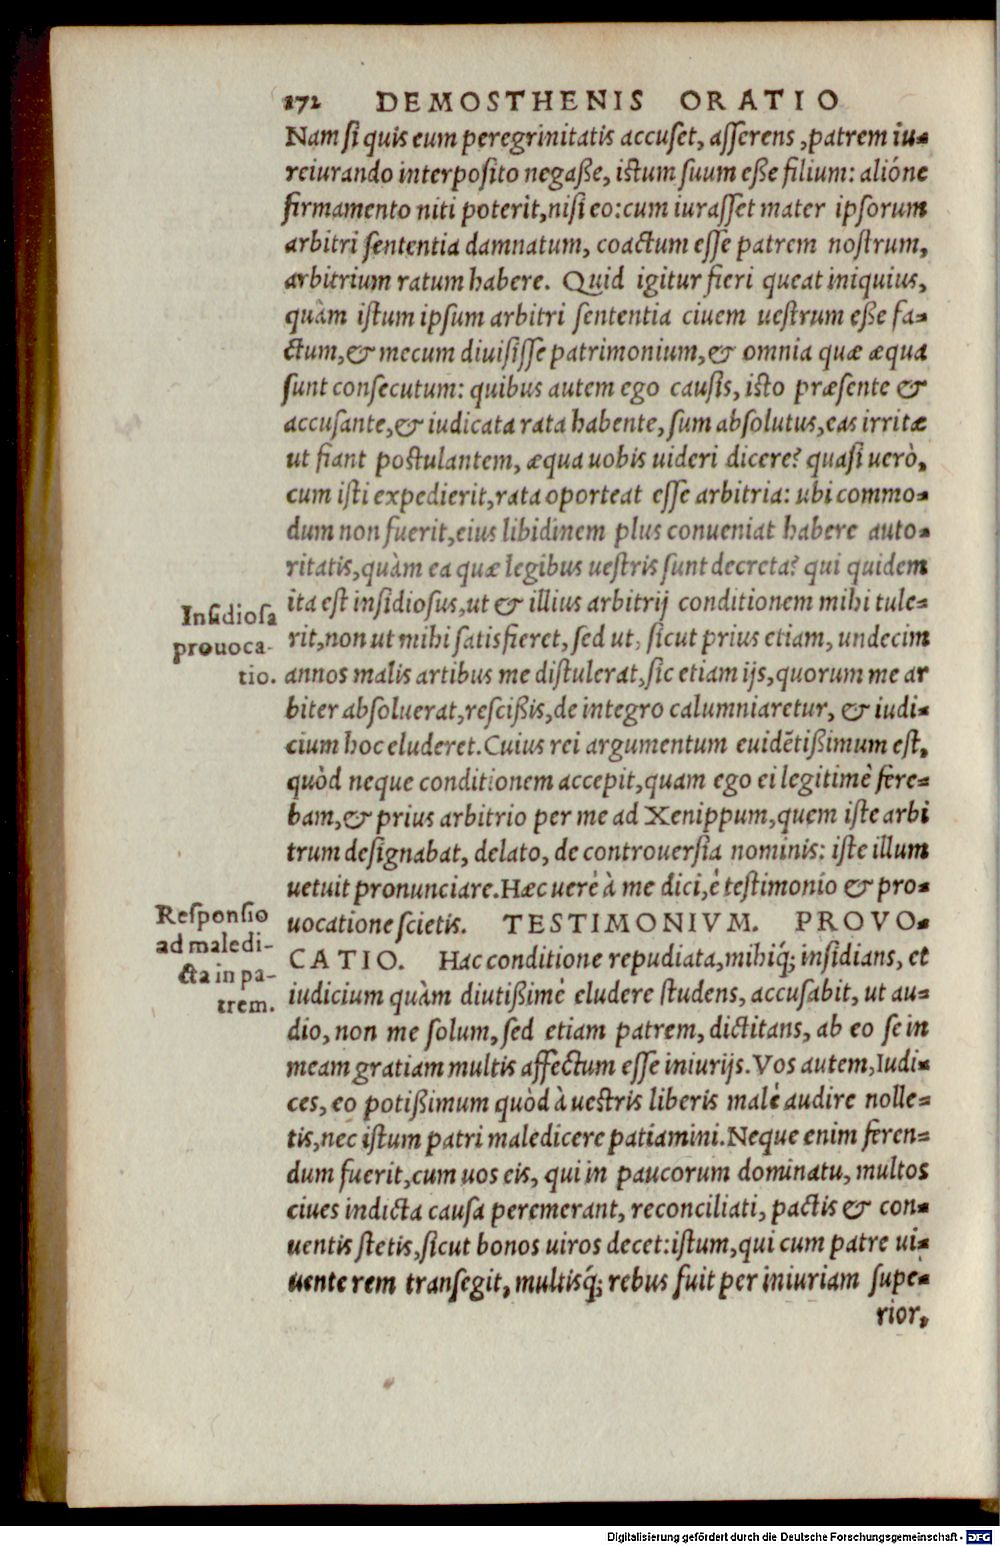 172 DEMOSTHENIS ORATIO
Nam si quis eum peregrinitatis accuset, asserens, patrem iu-
reiurando interposito negaße, istum suum eße filium: alióne
firmamento niti poterit, nisi eo: cum iurasset mater ipsorum
arbitri sententia damnatum, coactum esse patrem nostrum,
arbitrium ratum habere. Quid igitur fieri queat iniquius,
quàm istum ipsum arbitri sententia ciuem uestrum eße fa-
ctum, & mecum diuisisse patrimonium, & omnia quæ æqua
sunt consecutum: quibus autem ego causis, isto præsente &
accusante, & iudicata rata habente, sum absolutus, eas irritæ
ut fiant postulantem, æqua uobis uideri dicere? quasi uerò,
cum isti expedierit, rata oporteat esse arbitria: ubi commo-
dum non fuerit, eius libidinem plus conueniat habere auto-
ritatis, quàm ea quæ legibus uestris sunt decreta? qui quidem
ita est insidiosus, ut & illius arbitrij conditionem mihi tule-
rit, non ut mihi satisfieret, sed ut, sicut prius etiam, undecim
annos malis artibus me distulerat, sic etiam ijs, quorum me ar
biter absoluerat, rescißis, de integro calumniaretur, & iudi-
cium hoc eluderet. Cuius rei argumentum euidētißimum est,
quòd neque conditionem accepit, quam ego ei legitimè fere-
bam, & prius arbitrio per me ad Xenippum, quem iste arbi
trum designabat, delato, de controuersia nominis: iste illum
uetuit pronunciare. Hæc uerè à me dici, è testimonio & pro-
uocatione scietis. TESTIMONIVM. PROVO-
CATIO. Hac conditione repudiata, mihiq́; insidians, et
iudicium quàm diutißimè eludere studens, accusabit, ut au-
dio, non me solum, sed etiam patrem, dictitans, ab eo se in
meam gratiam multis affectum esse iniurijs. Vos autem, Iudi-
ces, eo potißimum quòd à uestris liberis malè audire nolle-
tis, nec istum patri maledicere patiamini. Neque enim feren-
dum fuerit, cum uos eis, qui in paucorum dominatu, multos
ciues indicta causa peremerant, reconciliati, pactis & con-
uentis stetis, sicut bonos uiros decet: istum, qui cum patre ui-
uente rem transegit, multisq́; rebus fuit per iniuriam supe-
rior,
Insidiosa
prouoca-
tio.
Responsio
ad maledi-
cta in pa-
trem.
Digitalisierung gefördert durch die Deutsche Forschungsgemeinschaft - DFG